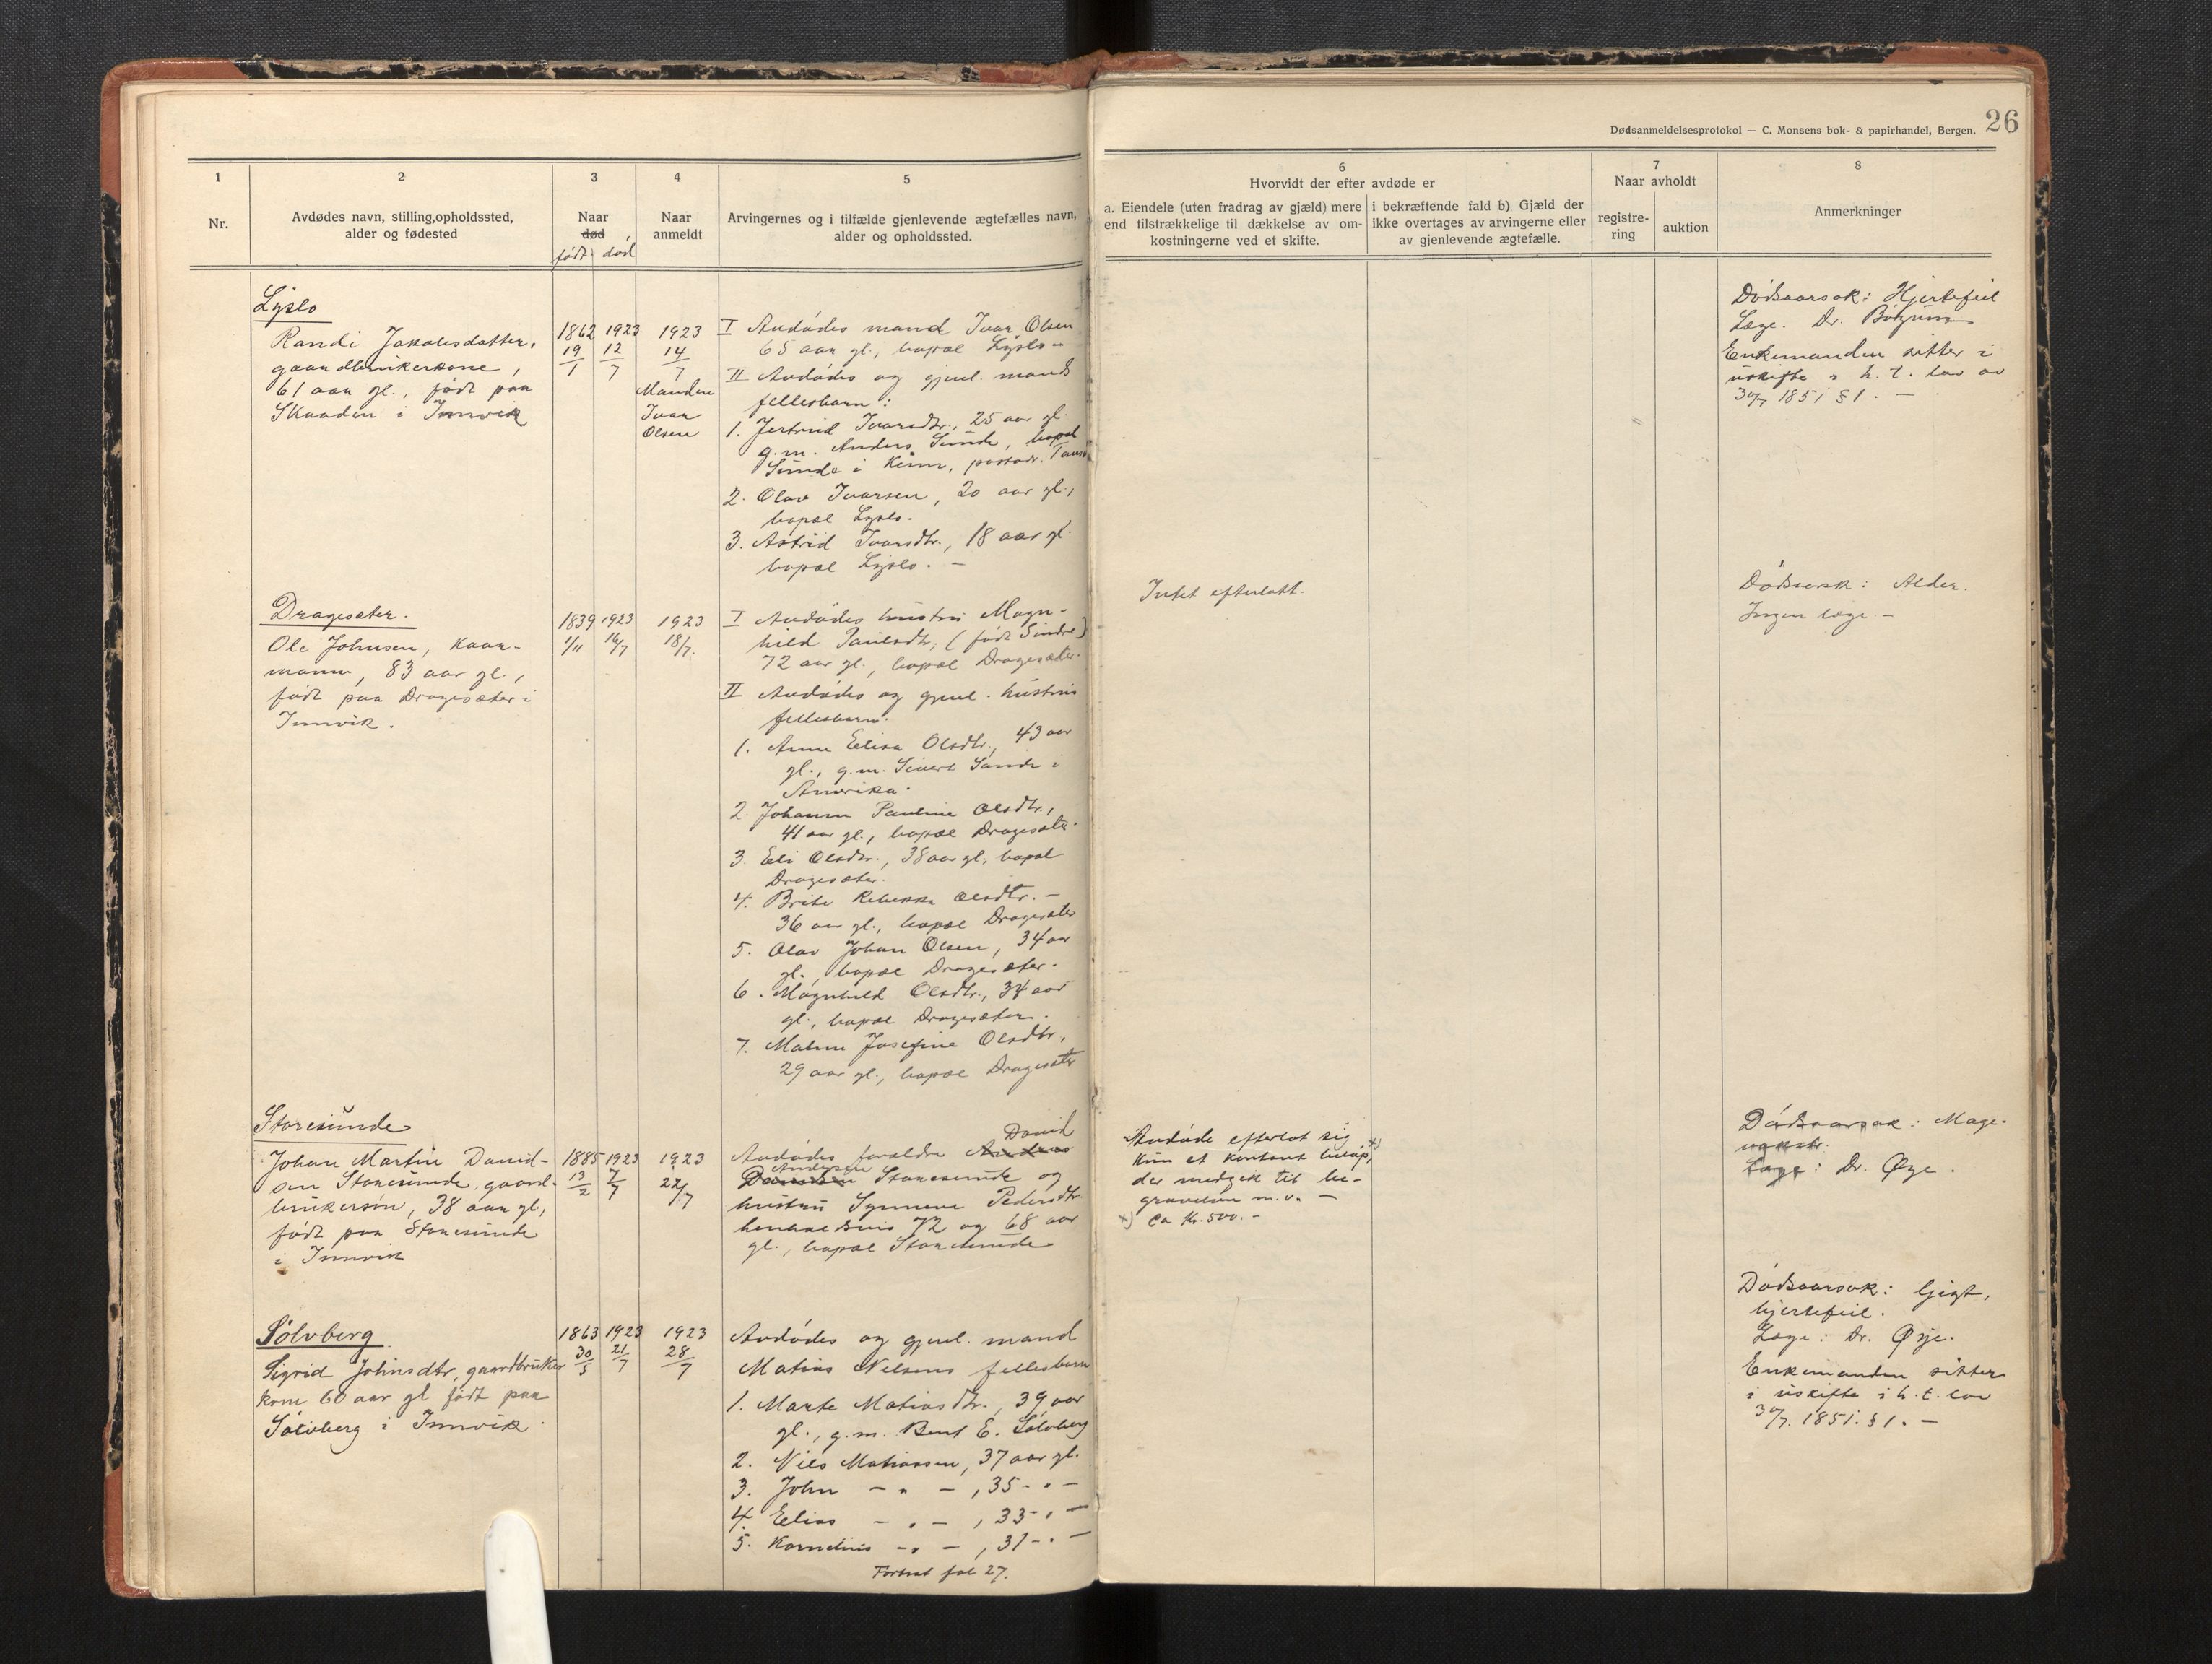 Dødsanmeldelsesprotokol — C. Monsens bok- & papirhandel, Bergen. 26
1
Nr.
2
Avdødes navn, stilling, opholdssted,
alder og fødested
3
Naar
død
født død
4
Naar
anmeldt
5
Arvingernes og i tilfælde gjenlevende ægtefælles navn,
alder og opholdssted.
6
Hvorvidt der efter avdøde er
a. Eiendele (uten fradrag av gjæld) mere
end tilstrækkelige til dækkelse av om-
kostningerne ved et skifte.
i bekræftende fald b) Gjæld der
ikke overtages av arvingerne eller
av gjenlevende ægtefælle.
7
Naar avholdt
registre-
ring
auktion
8
Anmerkninger
Lyslo
Randi Jakobsdatter,
gaardbrukerkone,
61 aar gl., født paa
Skaaden i Innvik
1862
19/1
1923
12/7
1923
14/7
Manden
Ivar
Olsen
I Avdødes mand Ivar Olsen
65 aar gl., bopæl Lyslo –
II Avdødes og gjenl. mands
fellesbarn:
1. Jertrud Ivarsdtr., 25 aar gl.
g.m. Anders Sunde, bopæl
Sunde i Kinn, postadr.
2. Olav Ivarsen, 20 aar gl.,
bopæl Lyslo.
3. Astrid Ivarsdtr., 18 aar gl.
bopæl Lyslo. –
Dødsaarsak: Hjertefeil
Læge. Dr.
Enkemanden sitter i
uskifte i h. t. lov av
30/7 1851 § 1. –
Dragesæter.
Ole Johnsen, kaar-
mann, 83 aar gl.,
født paa Dragesæter i
Innvik.
1839
1/11
1923
16/7
1923
18/7.
I Avdødes hustru Magn-
hild Paulsdtr, (født Sindre)
72 aar gl., bopæl Dragesæter.
II Avdødes og gjenl. hustrus
fellesbarn:
1. Anne Elisa Olsdtr., 43 aar
gl., g.m. Sivert Sande i
Amerika.
2 Johanne Pauline Olsdtr.,
41 aar gl., bopæl Dragesæter.
3. Eli Olsdtr., 38 aar gl., bopæl
Dragesæter.
4. Brite Rebekka Olsdtr. –
36 aar gl., bopæl Dragesæter
5. Olav Johan Olsen, 34 aar
gl., bopæl Dragesæter.
6. Magnhild Olsdtr., 34 aar
gl., bopæl Dragesæter.
7. Malene Josefine Olsdtr.,
29 aar gl., bopæl Dragesæter
Intet efterlatt.
Dødsaarsak: Alder.
Ingen læge. –
Storesunde
Johan Martin David-
sen Storesunde, gaard-
brukersøn, 38 aar gl,
født paa Storesunde
i Innvik
1885
13/2
1923
7/7
1923
22/7
David
Avdødes foreldre Anders
Andersen
Davidsen Storesunde og
hustru Synneve Pedersdtr.
henholdsvis 72 og 68 aar
gl., bopæl Storesunde
Avdøde efterlot sig
kun et kontant beløp, x)
der medgik til be-
gravelsen m.v. –
x) ca kr. 500. –
Dødsaarsak: Mage-
Læge: Dr. Øye.
Sølvberg
Sigrid Johnsdtr, gaardbruker
kone 60 aar gl født paa
Sølvberg i Innvik.
1863
30/5
1923
21/7
1923
28/7
Avdødes og gjenl. mand
Matias Nilsens fellesbarn
1. Marte Matiasdtr., 39 aar
gl., g.m. Bent E. Sølvberg
2. Nils Matiassen, 37 aar gl.
3. John – " – , 35 - " –
4. Elias – " – , 33 - " –
5. Kornelius – " – , 31 - " –
Fortsat fol 27.
Dødsaarsak: Gigt,
hjertefeil.
Læge: Dr. Øye.
Enkemanden sitter
i uskifte i h.t. lov
30/7. 1851. § 1. –